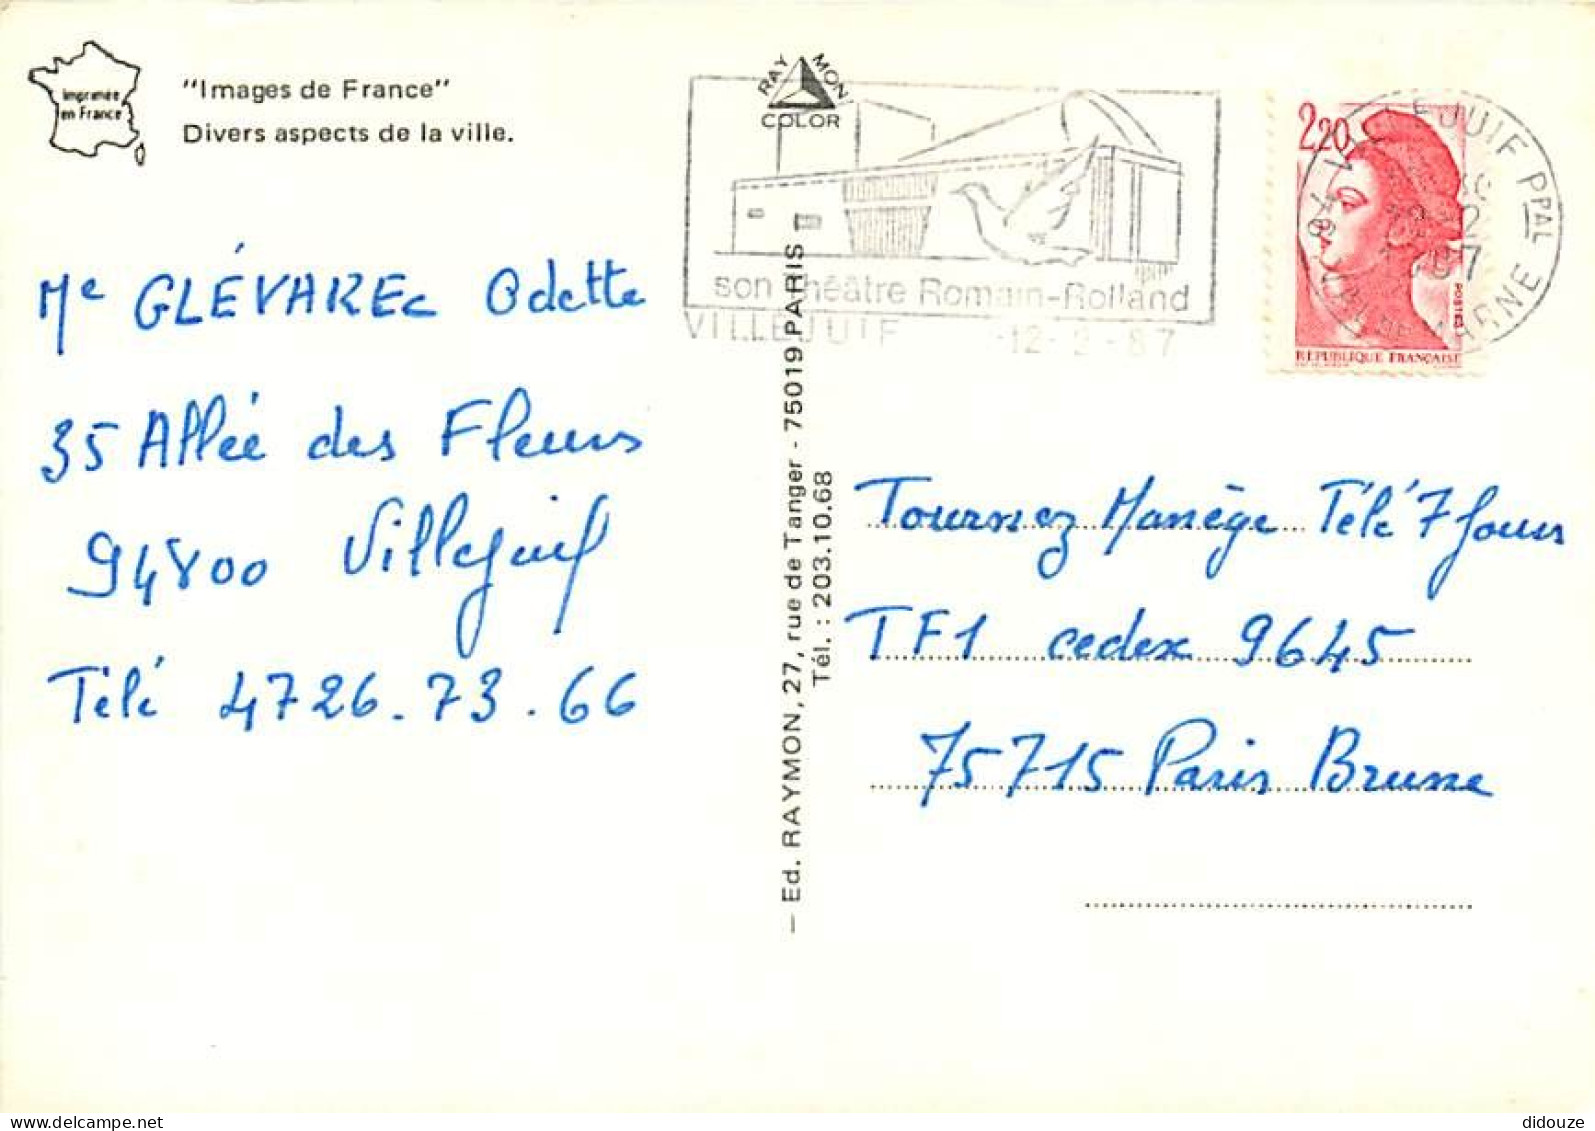 Imprimée
en France
"Images de France"
Divers aspects de la ville.
RAYMON
COLOR
son théâtre Romain-Rolland
VILLEJUIF 12-2-87
2,20
POSTES
RÉPUBLIQUE FRANÇAISE
VILLEJUIF PPAL
MARNE
Me GLÉVAREc Odette
35 Allée des Fleurs
94800 Villejuif
Télé 4726.73.66
— Ed. RAYMON, 27, rue de Tanger - 75019 PARIS —
Tél. : 203.10.68
Tournez Manège Télé 7 Jours
TF1 cedex 9645
75715 Paris Brune
www.delcampe.net
didouze